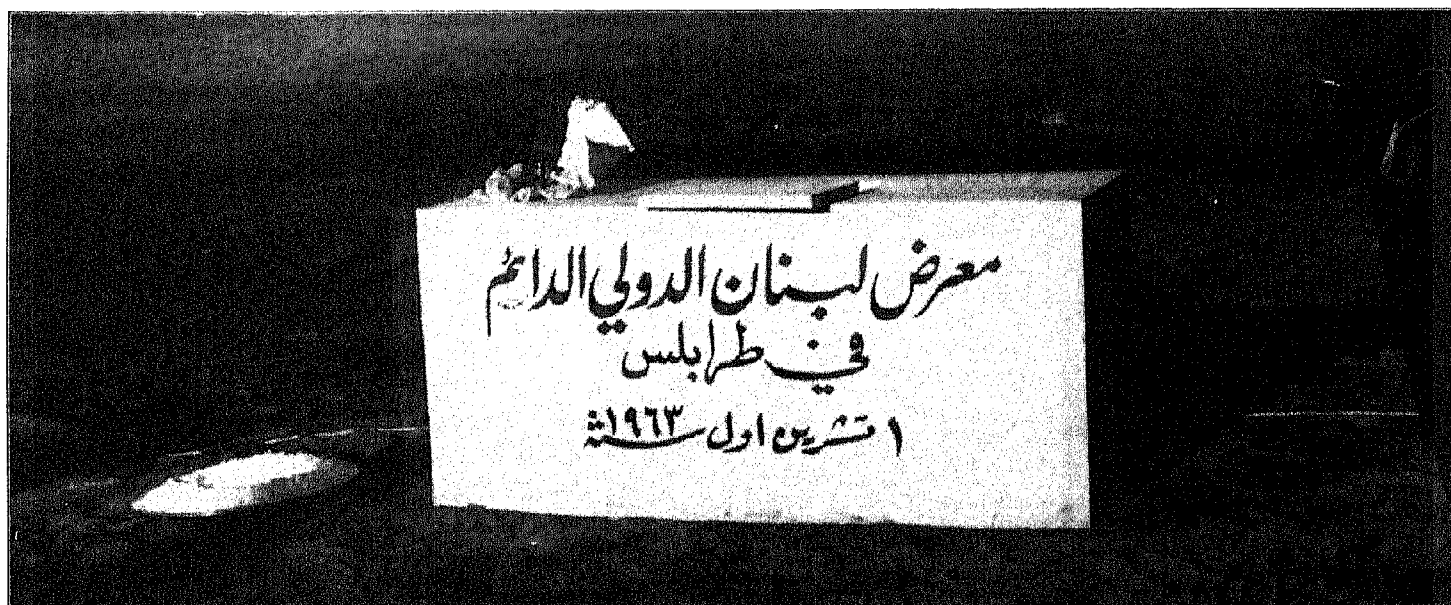 معرض لبنان الدولي الدائم
في طرابلس
١ تشرين اول سنة ١٩٦٣